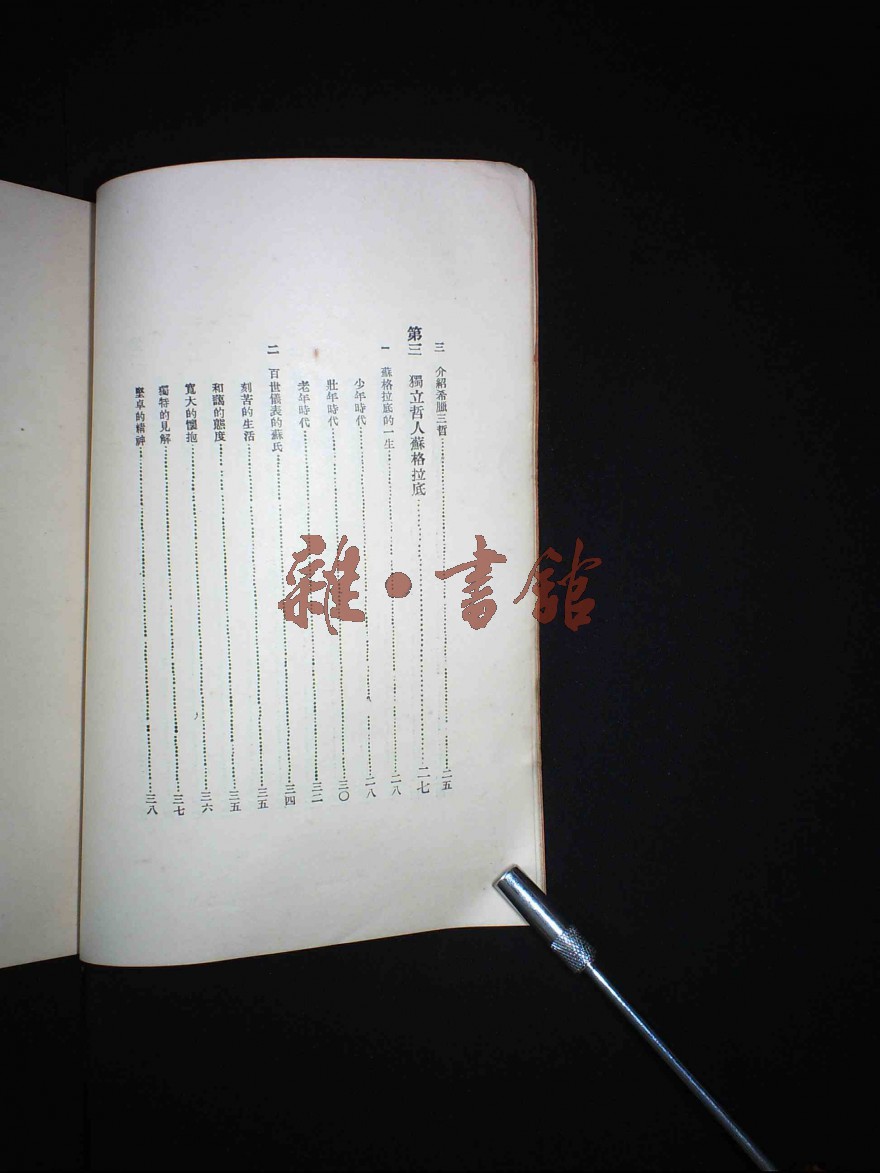 三　介紹希臘三哲 二五
第三　獨立哲人蘇格拉底 二七
一　蘇格拉底的一生 二八
少年時代 二八
壯年時代 三〇
老年時代 三二
二　百世儀表的蘇氏 三四
刻苦的生活 三五
和藹的態度 三五
寬大的懷抱 三六
獨特的見解 三七
堅卓的精神 三八
雜·書館